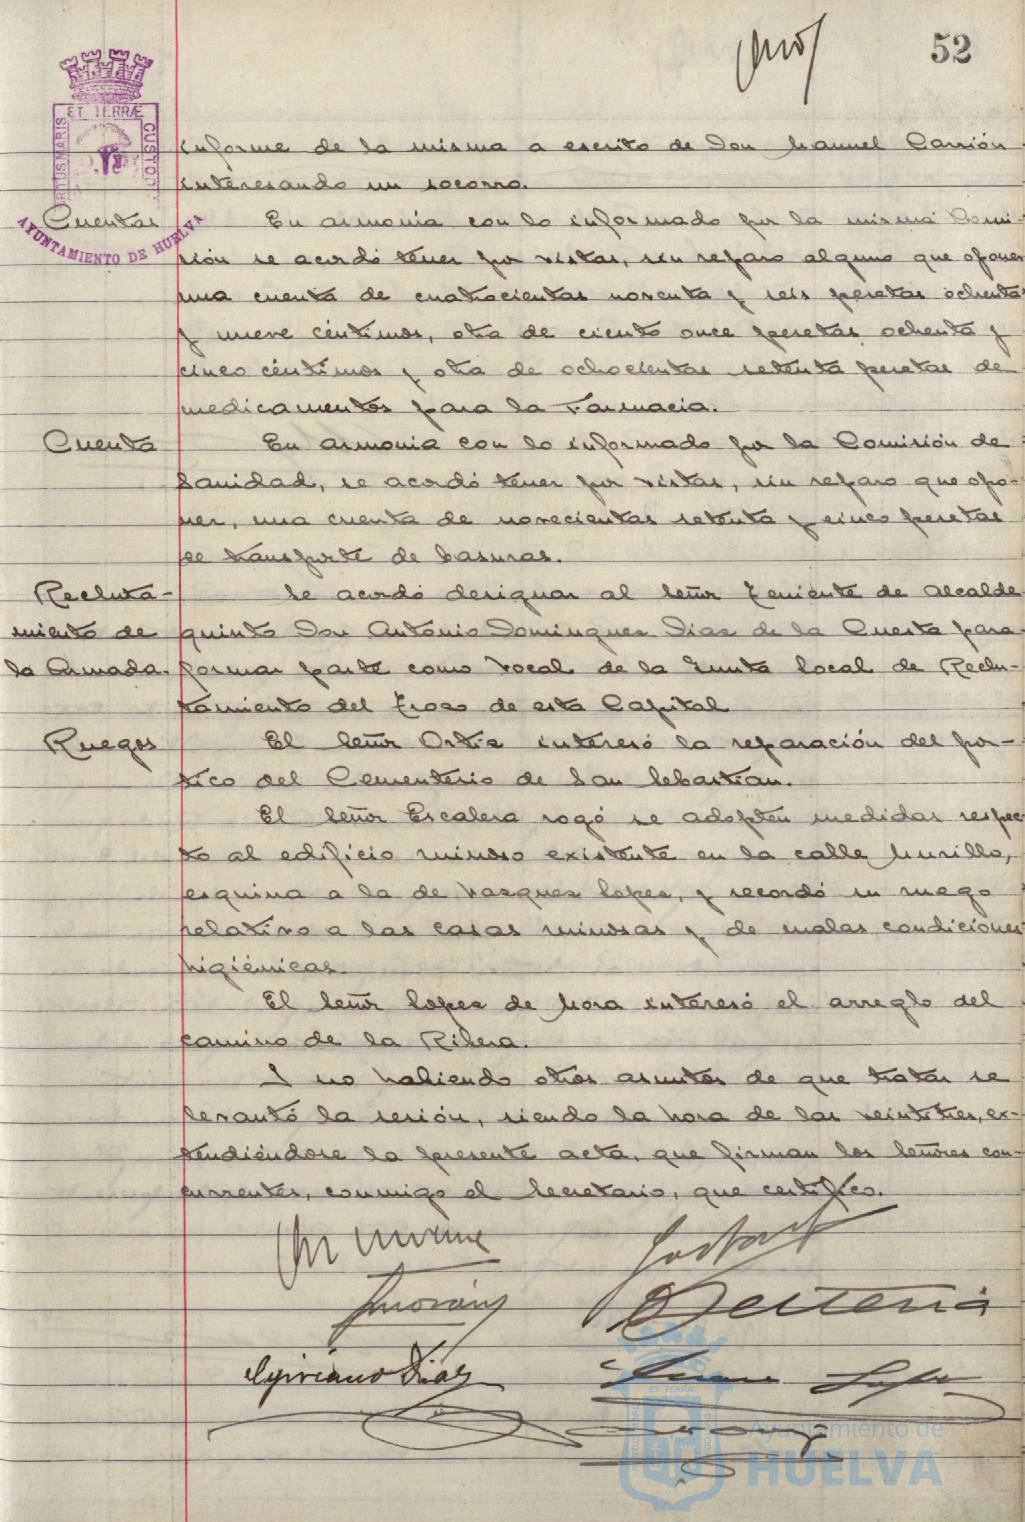 52
ET TERRÆ
PORTUS MARIS
CUSTODIA
AYUNTAMIENTO DE HUELVA
informe de la misma a escrito de Don Manuel Carrión
interesando un socorro.
Cuentas
En armonia con lo informado por la misma Comi-
sión se acordó tener por vistas, sin reparo alguno que oponer
una cuenta de cuatrocientas noventa y seis pesetas ochenta
y nueve céntimos, otra de ciento once pesetas ochenta y
cinco céntimos y otra de ochocientas setenta pesetas de
medicamentos para la Farmacia.
Cuenta
En armonia con lo informado por la Comisión de
Sanidad, se acordó tener por vistas, sin reparo que opo-
ner, una cuenta de novecientas setenta y cinco pesetas
de transporte de basuras.
Recluta-
miento de
la Armada.
Se acordó designar al Señor Teniente de Alcalde
quinto Don Antonio Dominguez Diaz de la Cuesta para
formar parte como Vocal de la Junta local de Reclu-
tamiento del Trozo de esta Capital
Ruegos
El Señor Ortiz interesó la reparación del por-
tico del Cementerio de San Sebastian.
El Señor Escalera rogó se adopten medidas respec-
to al edificio ruinoso existente en la calle Murillo,
esquina a la de Vazquez Lopez, y recordó su ruego
relativo a las casas ruinosas y de malas condiciones
higiénicas.
El Señor Lopez de Mora interesó el arreglo del
camino de la Ribera.
I no habiendo otros asuntos de que tratar se
levantó la sesión, siendo la hora de las veintitres, ex-
tendiéndose la presente acta, que firman los Señores con-
currentes, conmigo el Secretario, que certifico.
Cipriano Diaz
ET TERRÆ
Ayuntamiento de
HUELVA